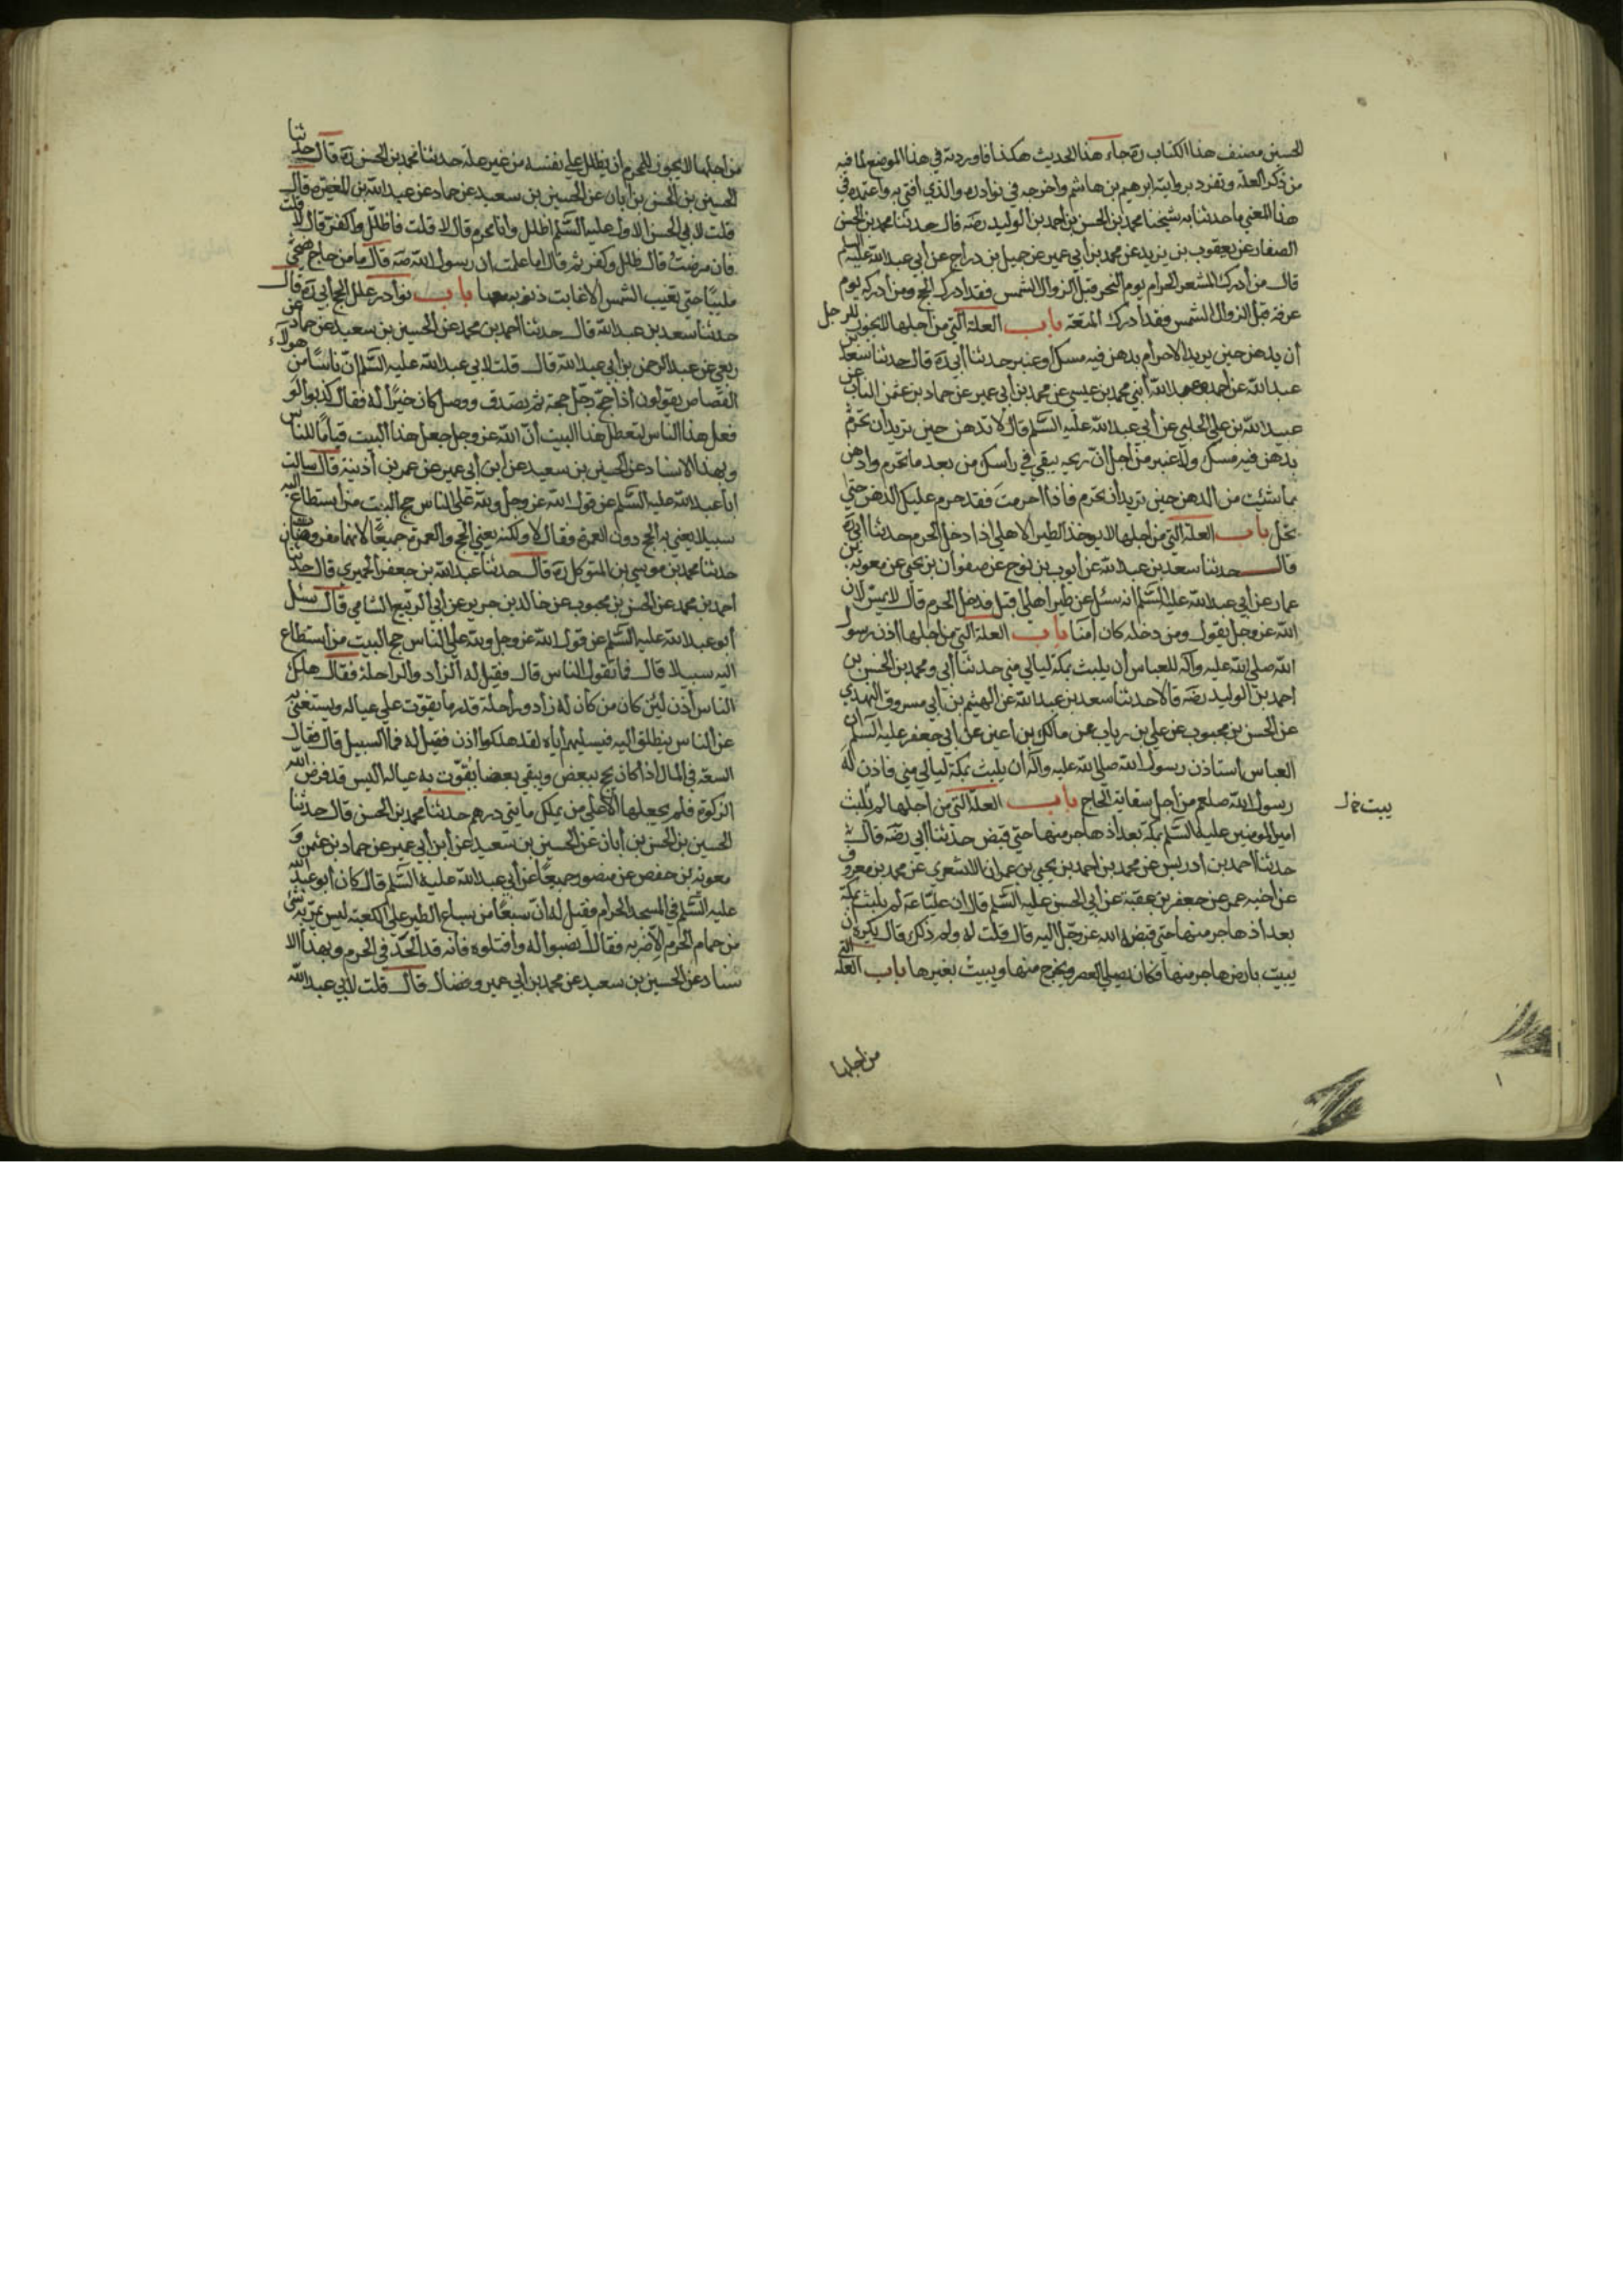 الحسين مصنف هذا الكتاب ره جاء هذا الحديث هكذا فاوردته في هذا الموضع لما فيه
من ذكر العلة وتفرد بروايته ابرهيم بن هاشم واخرجه في نوادره والذي افتي به واعتمده في
هذا المعني ما حدثنا به شيخنا محمد بن الحسن بن احمد بن الوليد رضه قال حدثنا محمد بن الحسن
الصفار عن يعقوب بن يزيد عن محمد بن أبي عمير عن جميل بن دراج عن أبي عبد الله عليه السلم
قال من أدرك المشعر الحرام يوم النحر قبل الزوال الشمس فقد أدرك الحج ومن أدركه يوم
عرفة قبل الزوال الشمس فقد أدرك المتعة باب العلة التي من أجلها لا يجوز للرجل
أن يدهن حين يريد الاحرام بدهن فيه مسك أو عنبر حدثنا أبي ره قال حدثنا سعد بن
عبد الله عن أحمد وعبد الله أبني محمد بن عيسي عن محمد بن أبي عمير عن حماد بن عثمن الناب عن
عبيد الله بن علي الحلبي عن أبي عبد الله عليه السلم قال لا تدهن حين تريد أن تحرم
بدهن فيه مسك ولا عنبر من أجل ان ريحه يبقي في راسك من بعد ما تحرم وادهن
بما شئت من الدهن حين تريد أن تحرم فاذا أحرمت فقد حرم عليك الدهن حتي
تحل باب العلة التي من أجلها لا يوخذ الطير الاهلي اذا دخل الحرم حدثنا أبي ره
قال حدثنا سعد بن عبد الله عن أيوب بن نوح عن صفوان بن يحيي عن معوية بن
عمار عن أبي عبد الله عليه السلم انه سئل عن طير أهلي اقبل فدخل الحرم قال لا يمس لان
الله عز وجل يقول ومن دخله كان امنا باب العلة التي من اجلها اذن رسول
الله صلي الله عليه وآله للعباس أن يلبث بمكة ليالي مني حدثنا أبي ومحمد بن الحسن بن
احمد بن الوليد رضه قالا حدثنا سعد بن عبد الله عن الهيثم بن أبي مسروق النهدي
عن الحسن بن محبوب عن علي بن رياب عن مالك بن أعين عن أبي جعفر عليه السلم ان
العباس استاذن رسول الله صلي الله عليه وآله ان يلبث بمكة ليالي مني فاذن له
رسول الله صلعم من أجل سقاية الحاج باب العلة التي من أجلها لم يلبث
امير المومنين عليه السلم بمكة بعد أذ هاجر منها حتي قبض حدثنا أبي رضه قال
حدثنا احمد بن أدريس عن محمد بن احمد بن يحيي بن عمران الاشعري عن محمد بن معروف
عن أخيه عمر عن جعفر بن عقبة عن أبي الحسن عليه السلم قال ان عليا ع لم يلبث بمكة
بعد اذ هاجر منها حتي قبضه الله عز وجل اليه قال قلت له ولم ذلك قال يكره ان
يبيت بارض هاجر منها فكان يصلي العصر ويخرج منها ويبيت بغيرها باب العلة التي
من أجلها
من اجلها لا يجوز للمحرم أن يظلل علي نفسه من غير علة حدثنا محمد بن الحسن ره قال حدثنا
الحسين بن الحسن بن أبان عن الحسين بن سعيد عن حماد عن عبد الله بن المغيره قال
قلت لابي الحسن الاول عليه السلم اظلل وأنا محرم قال لا قلت فاظلل واكفر قال لا قلت
فان مرضت قال ظلل وكفر ثم قال اما علمت ان رسول الله صه قال ما من حاج يضحي
ملبيا حتي تغيب الشمس الا غابت ذنوبه معها باب نوادر علل الحج أبي ره قال
حدثنا سعد بن عبد الله قال حدثنا احمد بن محمد عن الحسين بن سعيد عن حماد عن
ربعي عن عبد الرحمن بن أبي عبد الله قال قلت لابي عبد الله عليه السلم ان ناسا من هولاء
القصاص يقولون أذا حج رجل حجة ثم تصدق ووصل كان خيرا له فقال كذبوا لو
فعل هذا الناس لتعطل هذا البيت أن الله عز وجل جعل هذا البيت قياما للناس
وبهذا الاسناد عن الحسين بن سعيد عن ابن أبي عمير عن عمر بن أذينة قال سالت
ابا عبد الله عليه السلم عن قول الله عز وجل ولله علي الناس حج البيت من أستطاع اليه
سبيلا يعني به الحج دون العمرة فقال لا ولكنه يعني الحج والعمرة جميعا لانهما مفروضان
حدثنا محمد بن موسي بن المتوكل ره قال حدثنا عبد الله بن جعفر الحميري قال حدثنا
احمد بن محمد عن الحسن بن محبوب عن خالد بن جرير عن أبي الربيع الشامي قال سئل
أبو عبد الله عليه السلم عن قول الله عز وجل ولله علي الناس حج البيت من أستطاع
اليه سبيلا قال فما تقول الناس قال فقيل له الزاد والراحلة فقال هلك
الناس أذن لئن كان من كان له زاد وراحلة قدر ما يقوت علي عياله ويستغني به
عن الناس ينطلق اليه فيسليهم أياه لقد هلكوا اذن فقيل له فما السبيل قال فقال
السعة في المال اذا كان يحج ببعض ويبقي بعضا يقوت به عياله اليس قد فرض الله
الزكوة فلم يجعلها الا علي من يملك مايتي درهم حدثنا محمد بن الحسن قال حدثنا
الحسين بن الحسن بن أبان عن الحسين بن سعيد عن ابن أبي عمير عن حماد بن عثمن و
معوية بن حفص عن منصور جميعا عن أبي عبد الله عليه السلم قال كان أبو عبد الله
عليه السلم في المسجد الحرام فقيل له ان سبعا من سباع الطير علي الكعبة ليس يمر به شي
من حمام الحرم الا ضربه فقال انصبوا له وأقتلوه فانه قد الحد في الحرم وبهذا الا
سناد عن الحسين بن سعيد عن محمد بن أبي عمير وفضال قال قلت لابي عبد الله